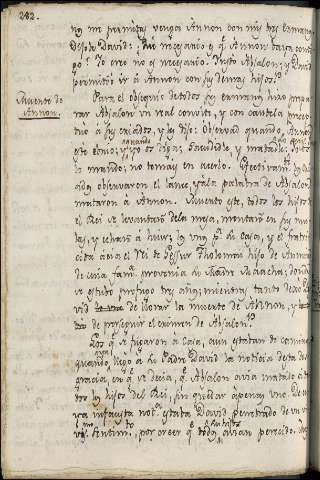 282.
no me permitas venga Amnon con mis tres hermanos
Dijole David: No es necesario q.e Amnon vaya conti-
go. Yo creo no es necesario. Insto Absalon, y David
permitió ir á Amnon con los demas hijos.
Muerte de
Amnon.
Para el obsequio de todos sus hermanos hizo prepa-
rar Absalon un real convite, y con cautela
a sus criados, y les dijo: Observad quando Amnon
este ebrio, y quando yo os diga: Sacudidle, y matadle:
lo mando, no temais en
ados observaron el lance, y á la palabra de Absalon
mataron á Amnon. Muerto este, todos los hijos de
el Rei se levantaron de la mesa, montaron en sus mu-
las, y echaron á huir, los unos p.a su casa, y el fratri-
cida acia el Rei de Gessur Tholomai hijo de Amiud
de cuia fam.a provenia su Madre Maacha; donde
se estubo profugo tres años; mientras tanto Da-
vid de llorar la muerte de Amnon, y
de perseguir el crimen de Absalon.
Los q.e se fugaron a casa, aun estaban de camino
quando llegó a su Padre David la noticia de esta des-
gracia, en q.e se decia, q.e Absalon avia matado á to-
dos los hijos del Rei, sin quedar apenas uno. De
ra infausta not.a estaba David penetrado de un vi-
vo sentim.to, por creer q.e todos avian perecido.